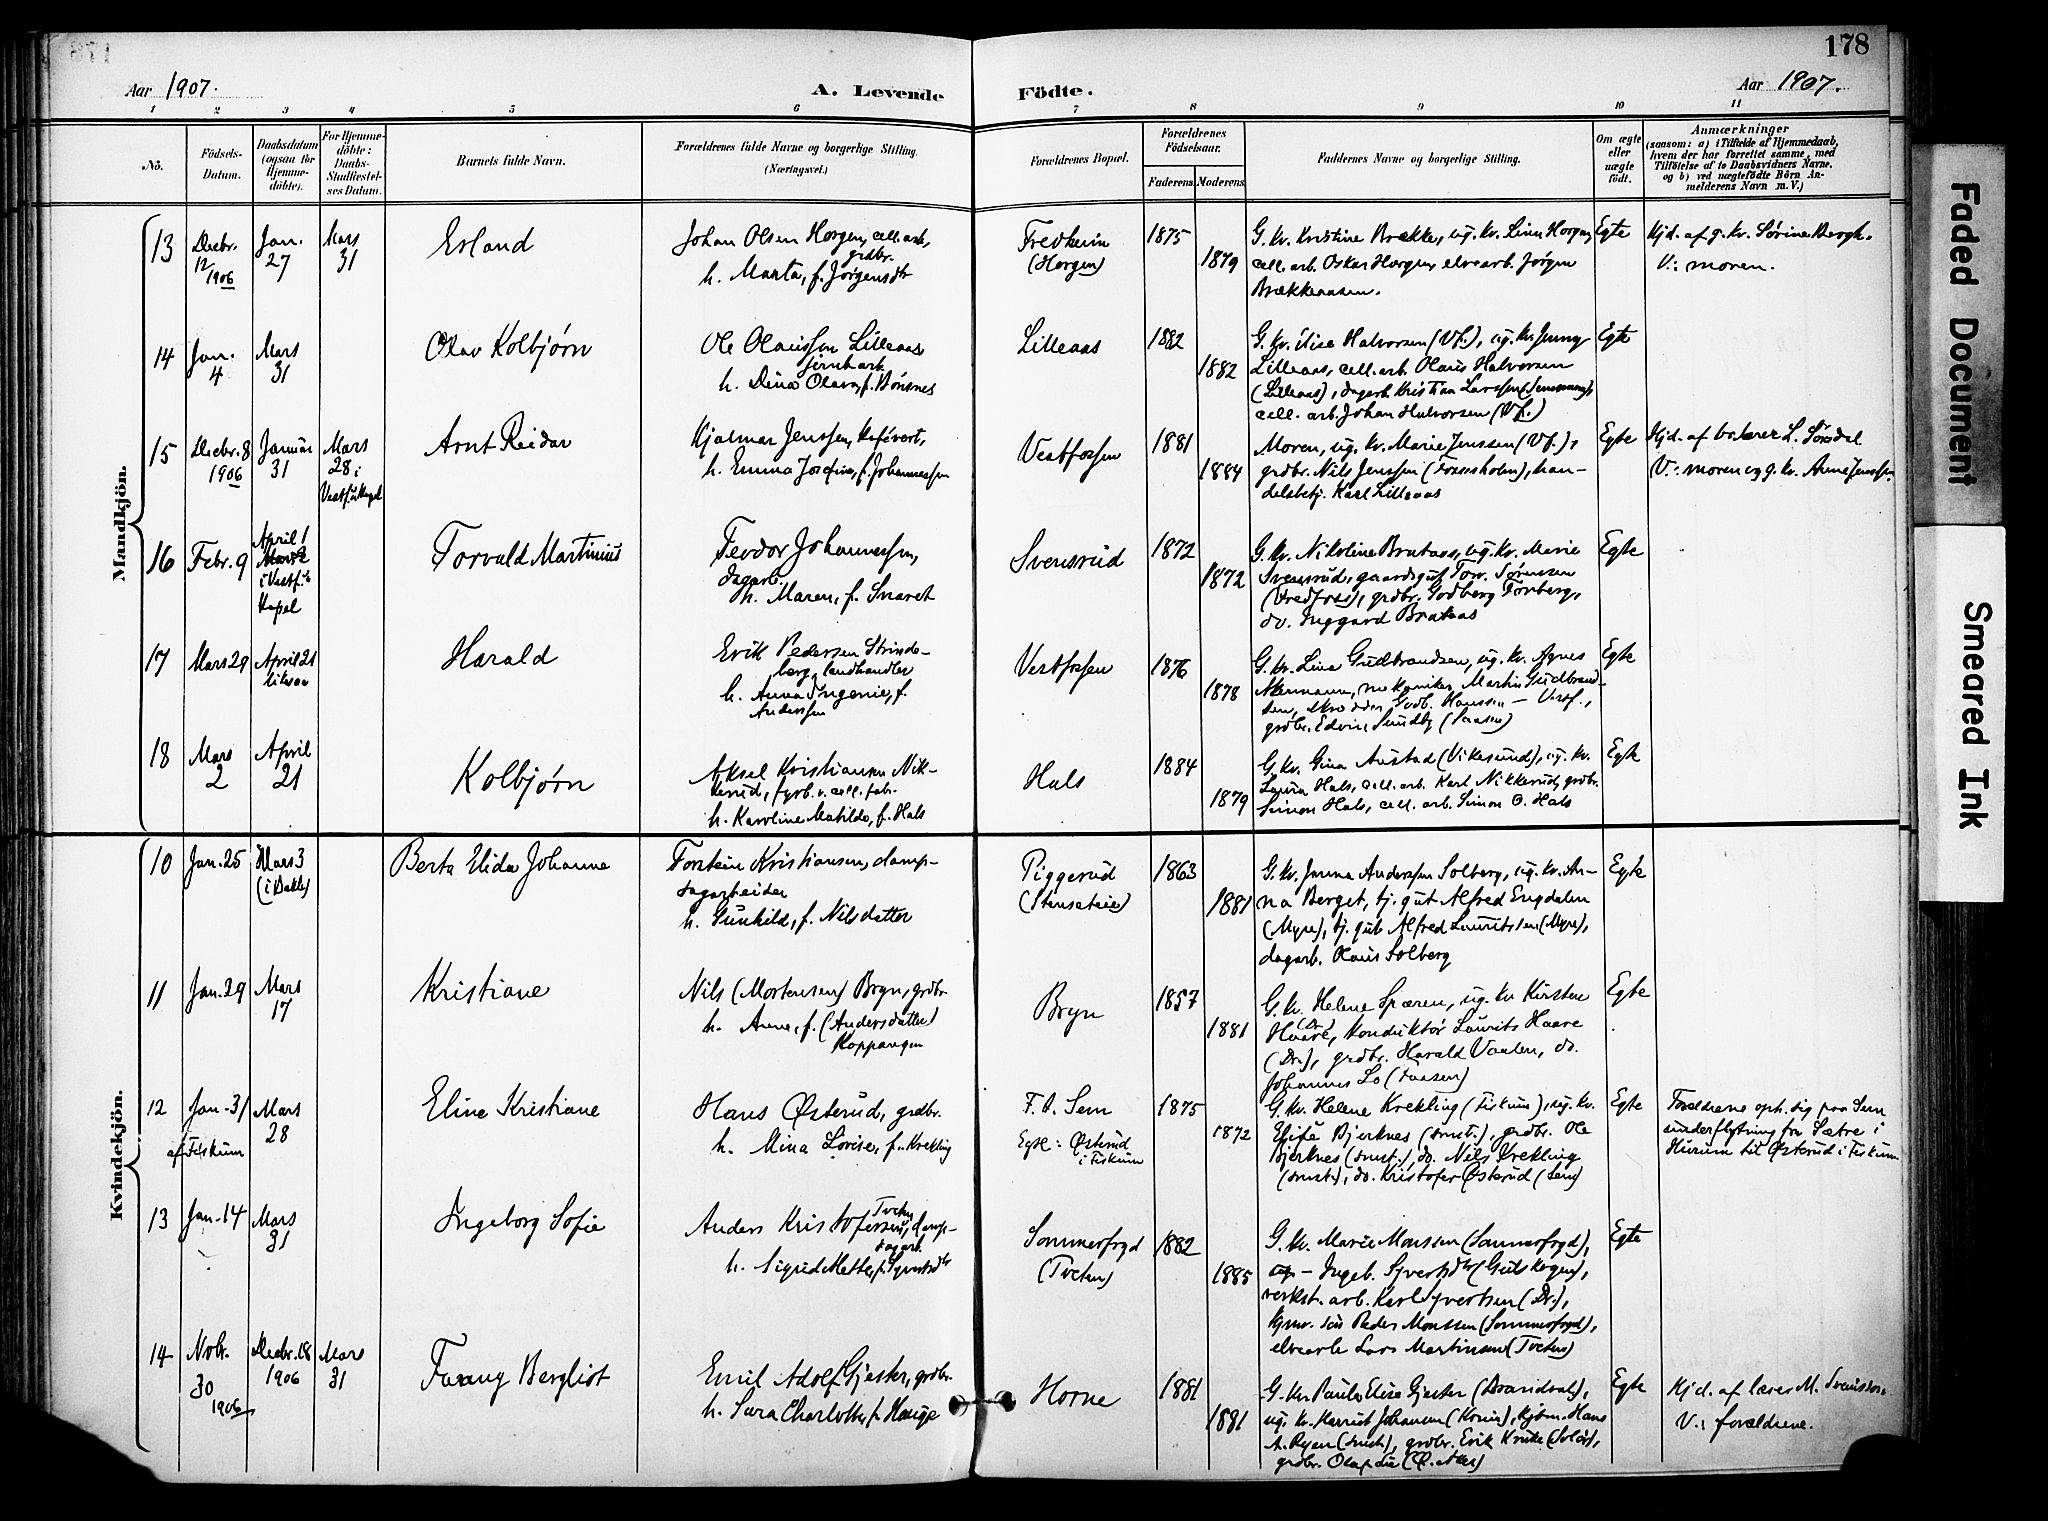 178
Aar 1907.
A. Levende Födte.
Aar 1907.
1 2 3 4 5 6 7 8 9 10 11
No.
Födsels-
Datum.
Daabsdatum
(ogsaa for
Hjemme-
döbte).
For Hjemme-
döbte:
Daabs-
Stadfæstel-
ses Datum.
Barnets fulde Navn.
Forældrenes fulde Navne og borgerlige Stilling.
(Næringsvei.)
Forældrenes Bopæl.
Forældrenes
Födselsaar.
Faderens. Moderens.
Faddernes Navne og borgerlige Stilling.
Om ægte
eller
uægte
födt.
Anmærkninger
(saasom: a) i Tilfælde af Hjemmedaab,
hvem der har forrettet samme, med
Tilföielse af to Daabsvidners Navne.
og b) ved uægtefödte Börn An-
melderens Navn m.V.)
Mandkjön.
13
Decbr.
12
1906
Jan.
27
Mars
31
Erland
Johan Olsen Horgen, cell. arb.,
grdbr.
h. Marta, f. Jörgensdtr
Fredheim
(Horgen)
1875
1879
G. kv. Kristine Brække, ug. kv. Horgen,
cell. arb. Oskar Horgen, elvearb. Jørgen
Brækkeaasen.
Egte
Hjd. af g. kv. Sørine Bergh.
V.: moren.
14
Jan.
4
Mars
31
Olav Kolbjørn
Ole Olaussen Lilleaas
jernb. arb.
h. Dina Olava, f. Bönsnes
Lilleaas
1882
1882
G. kv. Elise Halvorsen (Vf.), ug. kv. Jenny
Lilleaas, cell. arb. Olaus Halvorsen
(Lilleaas), dagarb. Kristian Larssen,
cell. arb. Johan Halvorsen (Vf.)
Egte
15
Decbr. 8
1906
Januar
31
Mars
28 i
Arnt Reidar
Hjalmar Jenssen, kafévert,
h. Emma Josefine, f. Johannessen
Vestfossen
1881
1884
Moren, ug. kv. Marie Jenssen (Vf.),
grdbr. Nils Jenssen (Fossesholm), han-
delsbetj. Karl Lilleaas
Egte
Hjd. af baker L. Sørsdal
V.: moren og g. kv. Anna Jenssen.
16
Febr. 9
April 1
i Vestf.s
Kapel
Torvald Martinius
Teodor Johannessen,
dagarb.,
h. Maren, f. Snaret
Svensrud
1872
1872
G. kv. Nikoline Brataas, ug. kv. Marie
Svensrud, gaardsgut Torv. Sørensen
(Vredfoss), grdbr. Godberg Forberg,
do. Inggard Brataas
Egte
17
Mars 29
April 21
Harald
Erik Pedersen Strinde-
berg, landhandler
h. Anna Ingenie, f.
Anderssen
Vestfossen
1876
1878
G. kv. Lina Gudbrandsen, ug. kv. Agnes
Akermann, mekaniker Martin Gudbrand-
sen, skrædder Gudb. Hanssen – Vestf.,
grdbr. Edvin Sundby
Egte
18
Mars
2
April
21
Kolbjørn
Aksel Kristiansen Nik-
kerud, fyrb. v. cell. fab.
h. Karoline Matilde, f. Hals
Hals
1884
1879
G. kv. Gina Austad (Vikesund), ug. kv.
Laura Hals, cell. arb. Karl Nikkerud, grdbr.
Simon Hals, cell. arb. Simon O. Hals
Egte
Kvindekjön.
10
Jan. 25
Mars 3
Berta Elida Johanne
Torstein Kristiansen, damp-
sagarbeider
h. Gunhild, f. Nilsdatter
Piggerud
(Stenseteie)
1863
1881
G. kv. Jenna Anderssen Solberg, ug. kv. An-
na Berget, tj. gut Alfred Engdalen
(Myre), tj. gut Alfred Lauritsen (Myre),
dagarb. Olaus Solberg
Egte
11
Jan. 29
Mars
17
Kristiane
Nils (Mortensen) Bryn, grdbr.
h. Anne, f. (Andersdatter)
Koppangen
Bryn
1857
1881
G. kv. Helene Spæren, ug. kv. Kirsten
Haare, (Dr.) konduktør Laurits Haare
(Dr.), grdbr. Harald Vaalen, do.
Johannes Lo
Egte
12
Jan. 31
af Fiskum
Mars
28
Eline Kristiane
Hans Østerud, grdbr.
h. Mina Lovise, f. Krekling
F. O. Sem
Egtl.: Østerud
i Fiskum
1875
1872
G. kv. Helene Krekling (Fiskum), ug. kv.
Bjerknes (smst.), grdbr. Ole
Bjerknes (smst.), do. Nils Krekling
(smst.), do. Kristofer Østerud (Sem)
Egte
Forældrene oph. sig paa Sem
under flytning fra Sætre i
Hurum til Østerud i Fiskum
13
Jan. 14
Mars
31
Ingeborg Sofie
Anders Kristofersen Tveten, damp-
sagarb.
h. Sigrid Mette, f. Syvertsdtr
Sommerfryd
(Tveten)
1882
1885
G. kv. Marie Monssen (Sommerfryd),
– Ingeb. Syvertsdtr (Gulskogen),
verkst. arb. Karl Syvertsen (Dr.),
gmr. søn Peder Monssen (Sommerfryd),
elvearb. Lars Martinsen (Tveten)
Egte
14
Nvbr.
30
1906
Decbr. 18
1906
Mars
31
Fanny Bergliot
Emil Adolf Gjester, grdbr.
h. Sara Charlotte, f. Hauge
Horne
1881
1881
G. kv. Paula Elise Gjester,
ug. kv. Harriet Johansen, kjøbm. Hans
A. Ryen (smst.), grdbr. Erik Kruke,
grdbr. Olaf
Egte
Hjd. af lærer M. Svendsen.
V.: forældrene.
Faded Document
Smeared Ink